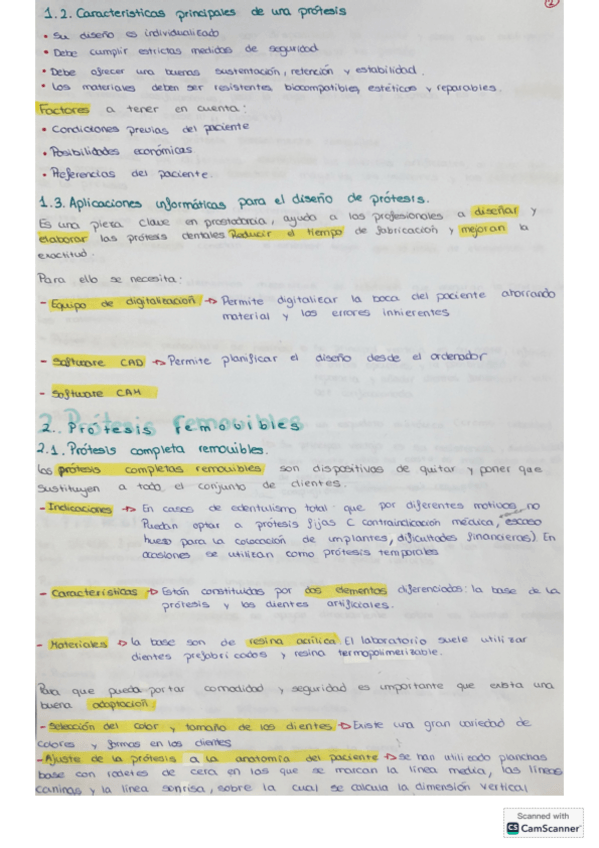 2
1.2. Características principales de una prótesis
• Su diseño es individualizado
• Debe cumplir estrictas medidas de seguridad
• Debe ofrecer una buena sustentación, retención y estabilidad.
• Los materiales deben ser resistentes biocompatibles, estéticos y reparables.
Factores a tener en cuenta:
• Condiciones previas del paciente
• Posibilidades económicas
• Preferencias del paciente.
1.3. Aplicaciones informáticas para el diseño de prótesis.
Es una pieza clave en prostodoncia, ayuda a los profesionales a diseñar y
elaborar las prótesis dentales Reducir el tiempo de fabricación y mejoran la
exactitud.
Para ello se necesita:
- Equipo de digitalización → Permite digitalizar la boca del paciente ahorrando
material y los errores inhierentes
- Software CAD → Permite planificar el diseño desde el ordenador
- Software CAM
2. Prótesis removibles
2.1. Prótesis completa removibles.
Las prótesis completas removibles son dispositivos de quitar y poner que
sustituyen a todo el conjunto de dientes.
- Indicaciones → En casos de edentulismo total que por diferentes motivos no
Puedan optar a prótesis fijas ( contraindicación médica, escaso
hueso para la colocación de implantes, dificultades financieras). En
ocasiones se utilizan como prótesis temporales
- Características → Están constituidas por dos elementos diferenciados: la base de la
prótesis y los dientes artificiales.
- Materiales → la base son de resina acrílica El laboratorio suele utilizar
dientes prefabricados y resina termopolimerizable.
Para que pueda portar comodidad y seguridad es importante que exista una
buena adaptación:
- Selección del color y tamaño de los dientes → Existe una gran variedad de
colores y formas en los dientes
- Ajuste de la prótesis a la anatomía del paciente → se han utilizado planchas
base con rodetes de cera en las que se marcan la línea media, las líneas
caninas y la línea sonrisa, sobre la cual se calcula la dimensión vertical
Scanned with
CS CamScanner